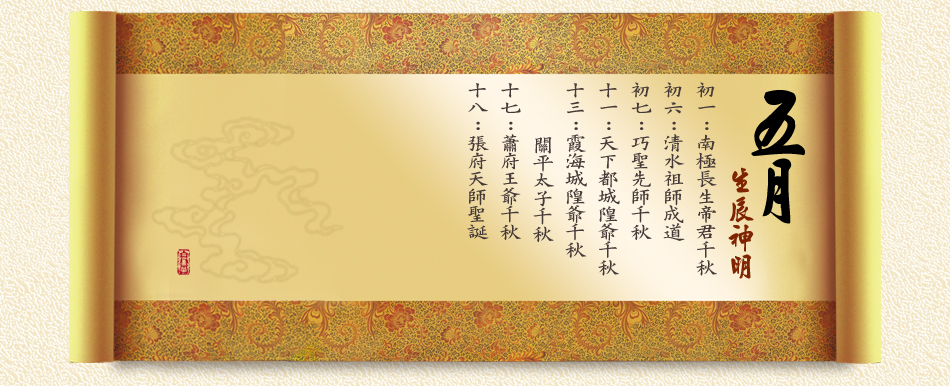 五月
生辰神明
初一：南極長生帝君千秋
初六：清水祖師成道
初七：巧聖先師千秋
十一：天下都城隍爺千秋
十三：霞海城隍爺千秋
關平太子千秋
十七：蕭府王爺千秋
十八：張府天師聖誕